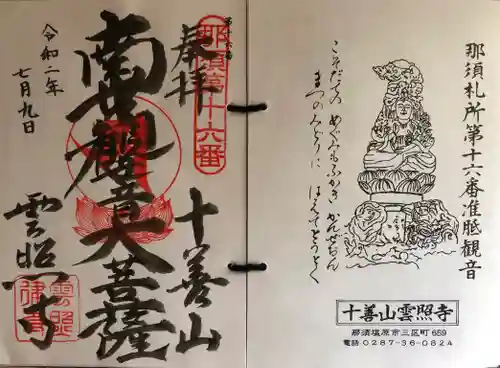 奉拝
那須第十六番
十善山
南無観音大菩薩
令和二年
七月九日
雲照寺
那須札所第十六番准胝観音
こそだての めぐみもふかき かんぜおん
まつのみどりに はえてとうとく
十善山雲照寺
那須塩原市三区町 659
電話 0287-36-0824